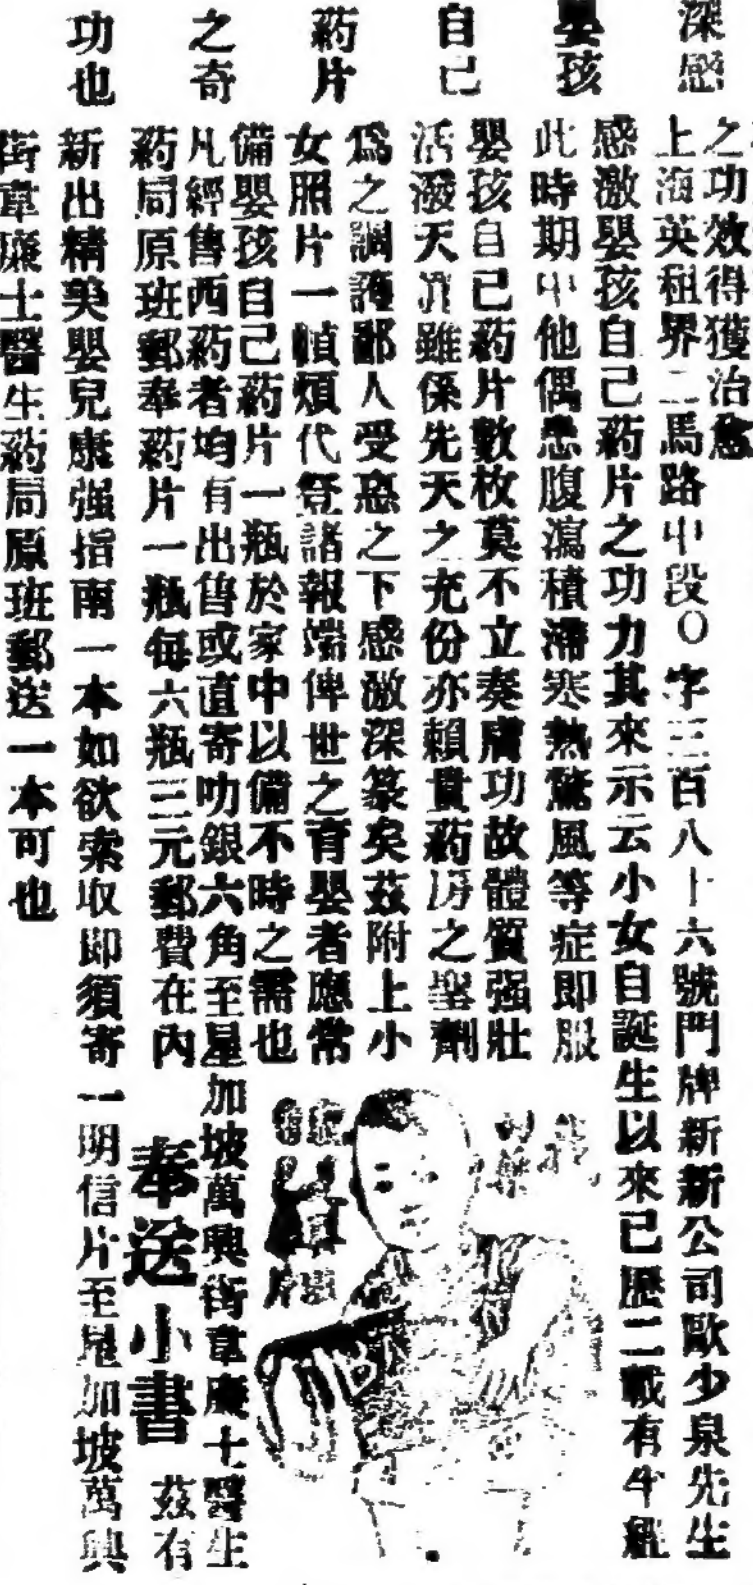 深感
嬰孩
自己
葯片
之奇
功也
之功效得獲治愈
上海英租界二馬路中段〇字三百八十六號門牌新新公司歐少泉先生
感激嬰孩自己葯片之功力其來示云小女自誕生以來已歷二載有半經
此時期中他偶患腹瀉積滯寒熱驚風等症即服
嬰孩自己葯片數枚莫不立奏膚功故體質强壯
活潑天真雖係先天之充份亦賴貴葯房之聖劑
爲之調護鄙人受惠之下感激深篆矣茲附上小
女照片一幀煩代登諸報端俾世之育嬰者應常
備嬰孩自己葯片一瓶於家中以備不時之需也
凡經售西葯者均有出售或直寄叻銀六角至星加坡萬興街韋廉士醫生
葯局原班郵奉葯片一瓶每六瓶三元郵費在內
奉送小書
茲有
新出精美嬰兒康强指南一本如欲索取即須寄一明信片至星加坡萬興
街韋廉士醫生葯局原班郵送一本可也